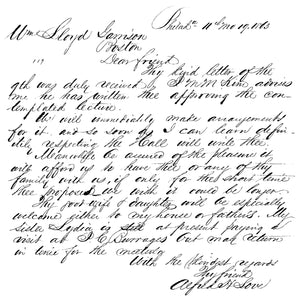 Philada 11th mo 19. 1863
Wm Lloyd Garrison
Boston
Dear friend
Thy kind letter of the
9th was duly received & J M McKim advises
me he has written thee approving the con-
templated lecture.
We will immediately make arrangements
for it. and so soon as I can learn defin-
itely respecting the Hall will write thee.
Meanwhile be assured of the pleasure it
will afford us to have thee or any of thy
family with us, if only for the short time
thee proposes. We wish it could be longer.
Thy good wife & daughter will be especially
welcome either to my house or fathers. My
sister Lydia is at present paying a
visit at Burrages but may return
in time for the meeting.
With the kindest regards
Thy friend
Alfred H Love